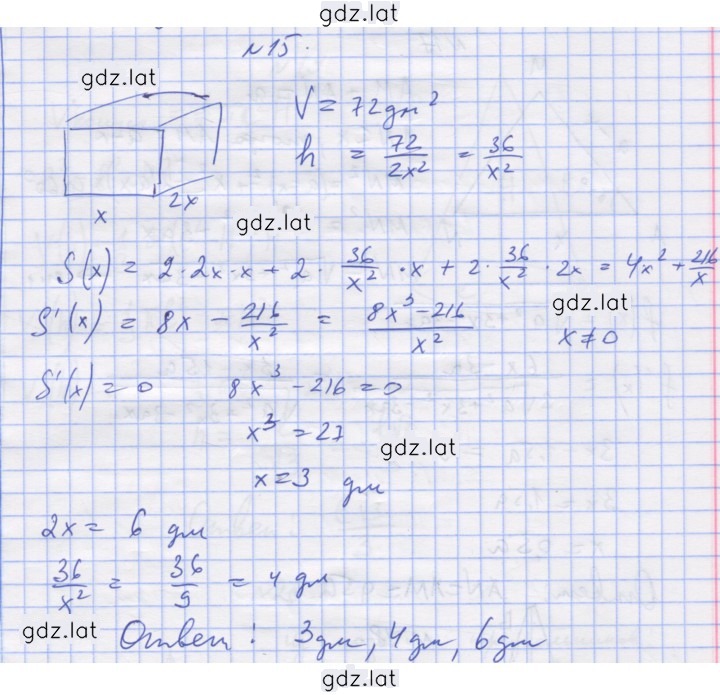 gdz.lat
№15.
gdz.lat
V = 72 дм²
h = 72/2x² = 36/x²
x 2x
gdz.lat
S(x) = 2·2x·x + 2·36/x²·x + 2·36/x²·2x = 4x² + 216/x
gdz.lat
S'(x) = 8x − 216/x² = 8x³−216/x² x≠0
S'(x) = 0 8x³ − 216 = 0
x³ = 27
gdz.lat
x = 3 дм
2x = 6 дм
36/x² = 36/9 = 4 дм
gdz.lat
Ответ: 3дм, 4дм, 6дм
gdz.lat